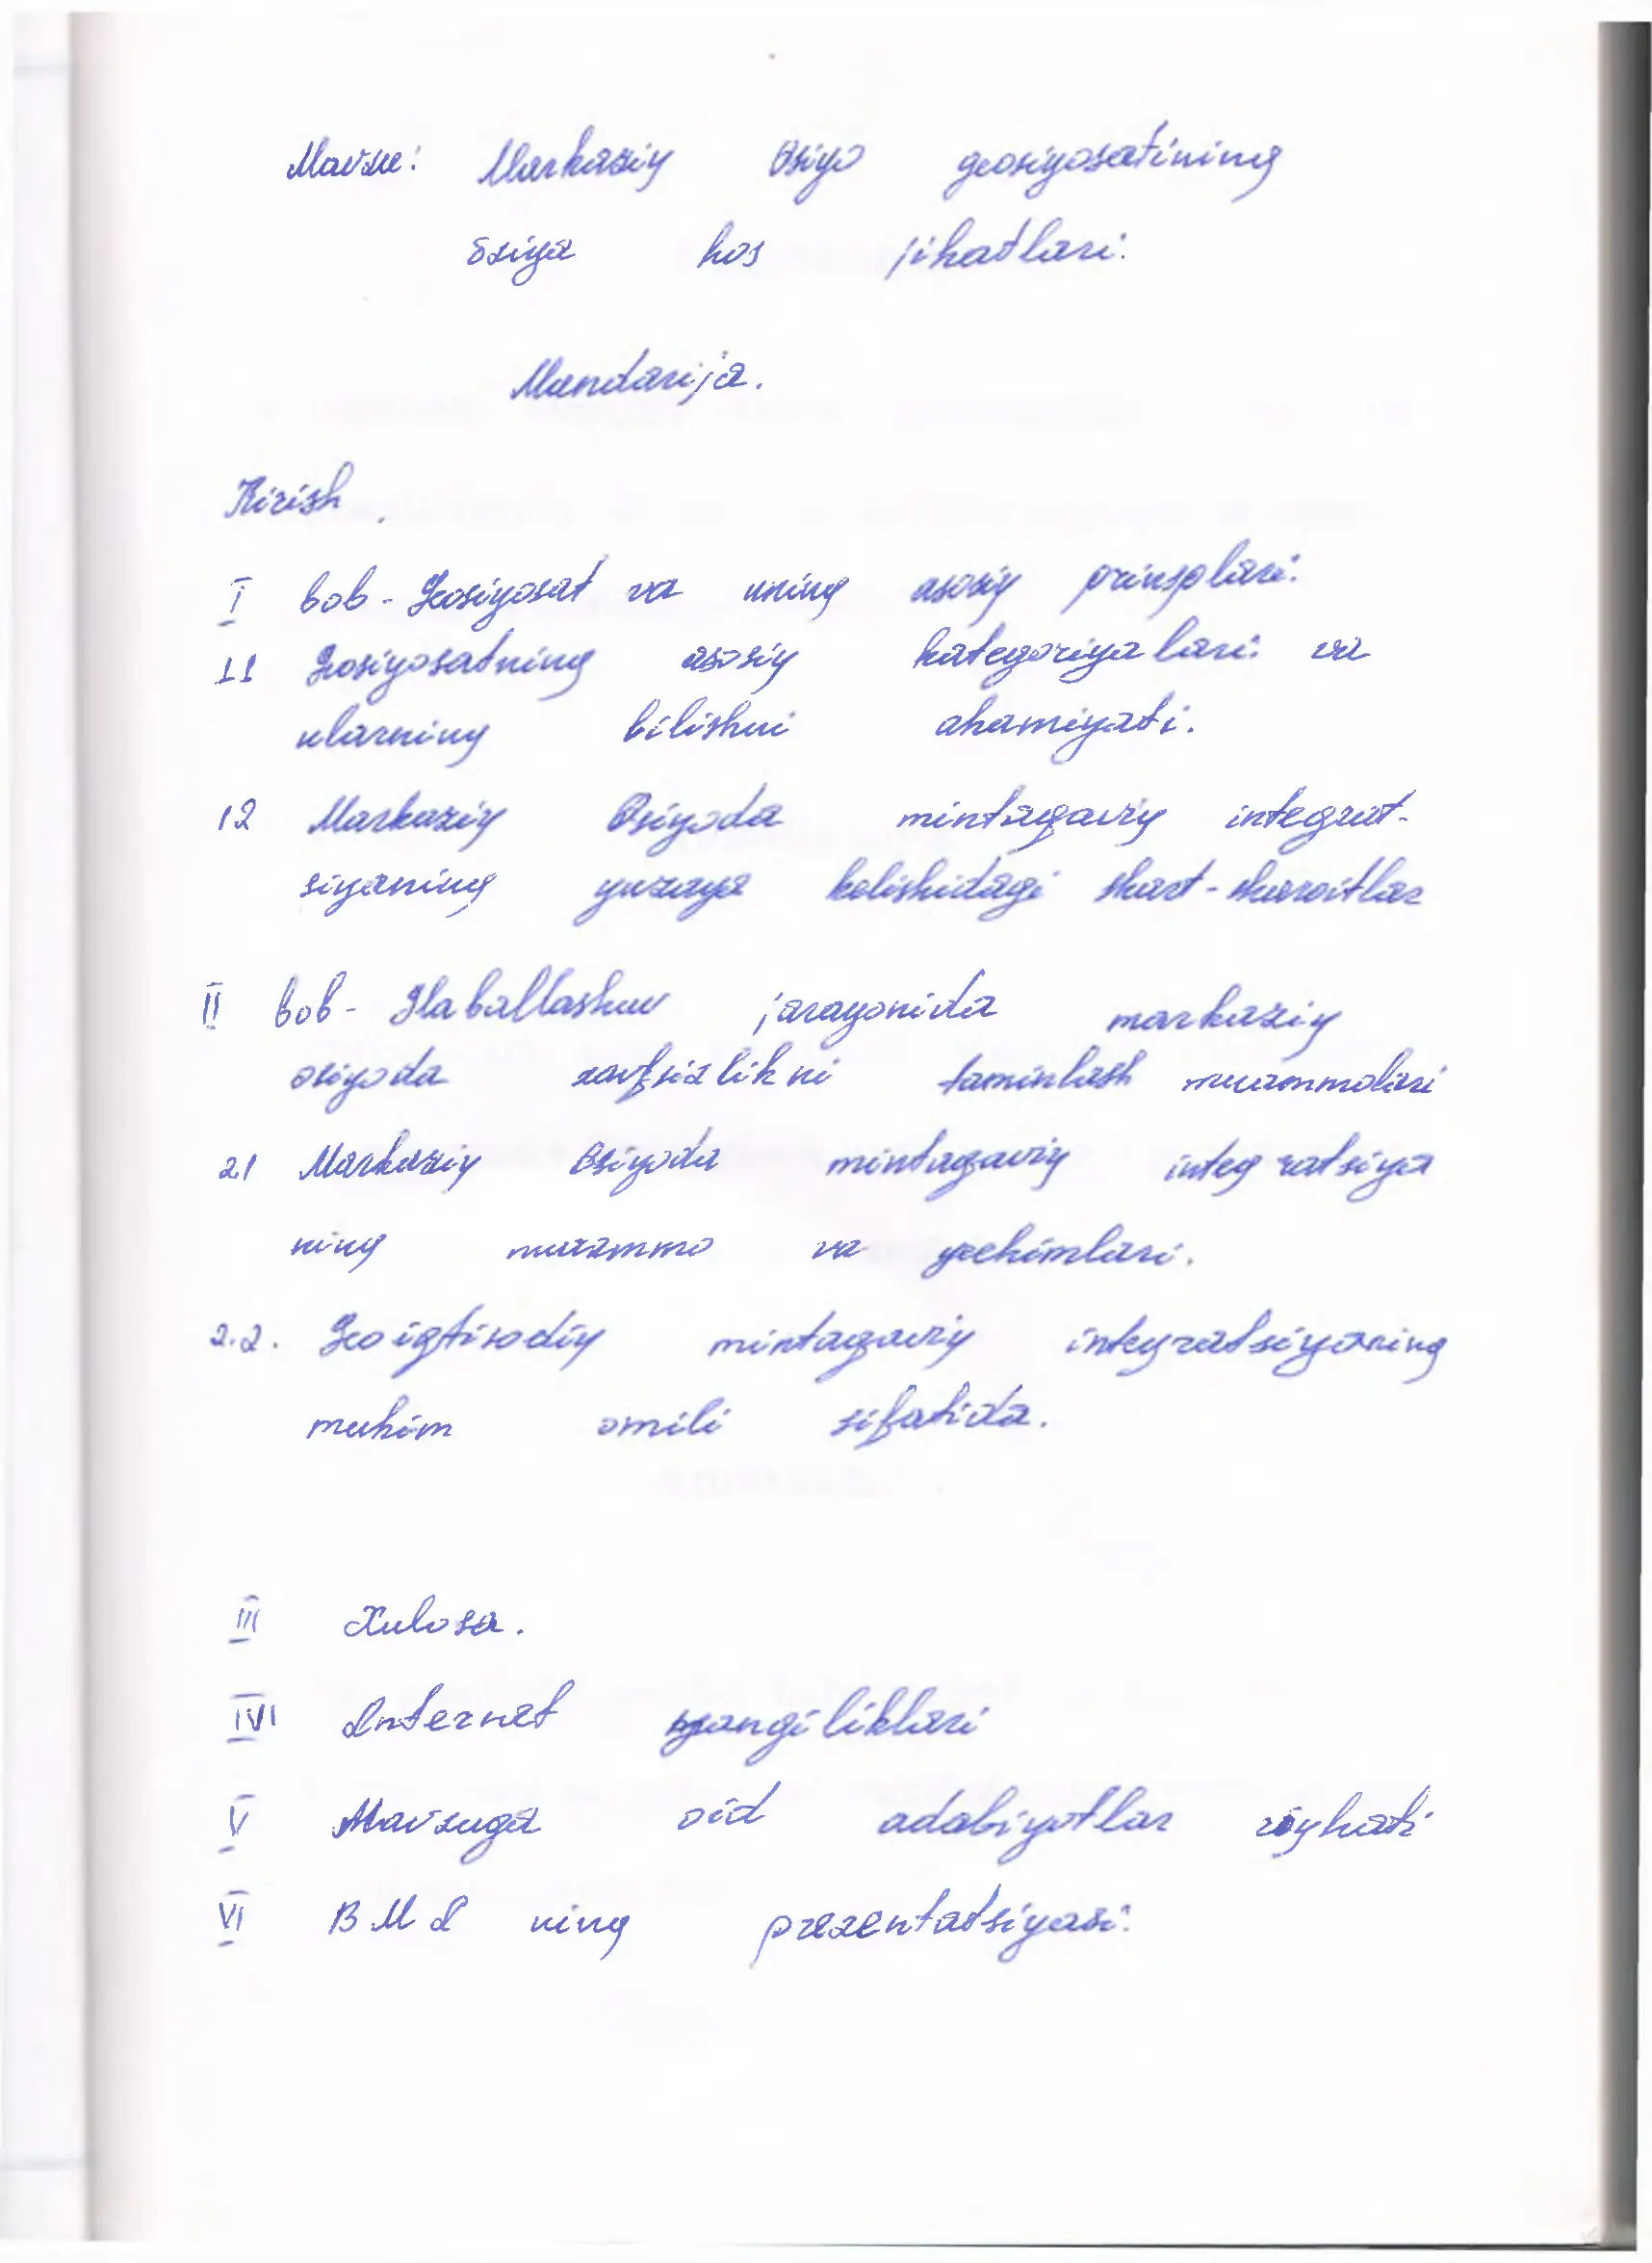 Mavzu: Markaziy Osiyo geosiyosatining
õziga hos jihatlari.
Mundarija.
Kirish.
I bob - Geosiyosat va uning asosiy prinsplari.
1.1 Geosiyosatning asosiy kategoriyalari va
ularning bilishni ahamiyati.
1.2 Markaziy Osiyoda mintaqaviy integrat-
siyaning yuzaga kelishidagi shart-sharoitlar
II bob - Glaballashuv jarayonida markaziy
osiyoda xavfsizlikni taminlash muammolari
2.1 Markaziy Osiyoda mintaqaviy integratsiya
ning muammo va yechimlari.
2.2. Geoiqtisodiy mintaqaviy integratsiyaning
muhim omili sifatida.
III Xulosa.
IV Internet yangiliklari
V Mavzuga oid adabiyotlar rõyhati
VI BMI ning prezentatsiyasi.